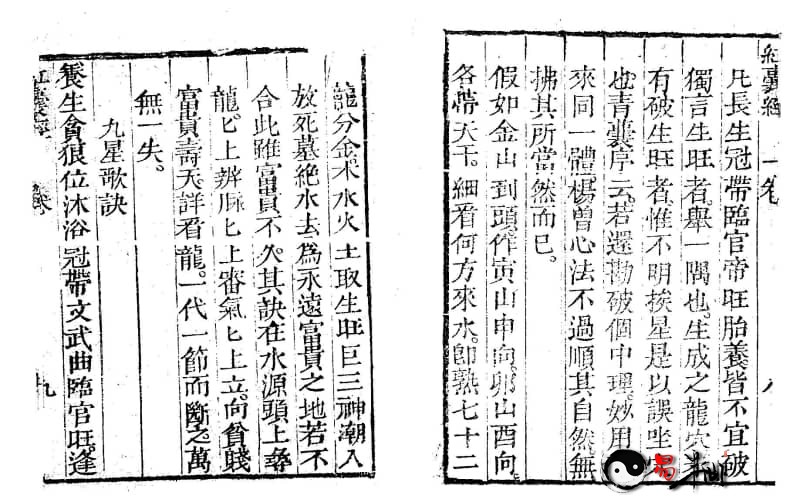 紅囊經 一卷 八
凡長生冠帶臨官帝旺胎養皆不宜破
獨言生旺者舉一隅也生成之龍穴
有破生旺者惟不明挨星是以誤坐
也青囊序云若還勘破個中理妙用
來同一體楊曾心法不過順其自然無
拂其所當然而已
假如金山到頭作寅山申向卯山酉向
各帶天干細看何方來水即熟七十二
龍分金木水火土取生旺巨三神潮入
放死墓絕水去為永遠富貴之地若不
合此雖富貴不久其訣在水源頭上尋
龍匕上辨脈匕上審氣匕上立向貧賤
富貴壽夭詳看龍一代一節而斷之萬
無一失
九星歌訣
養生貪狼位沐浴冠帶文武曲臨官旺逢
九